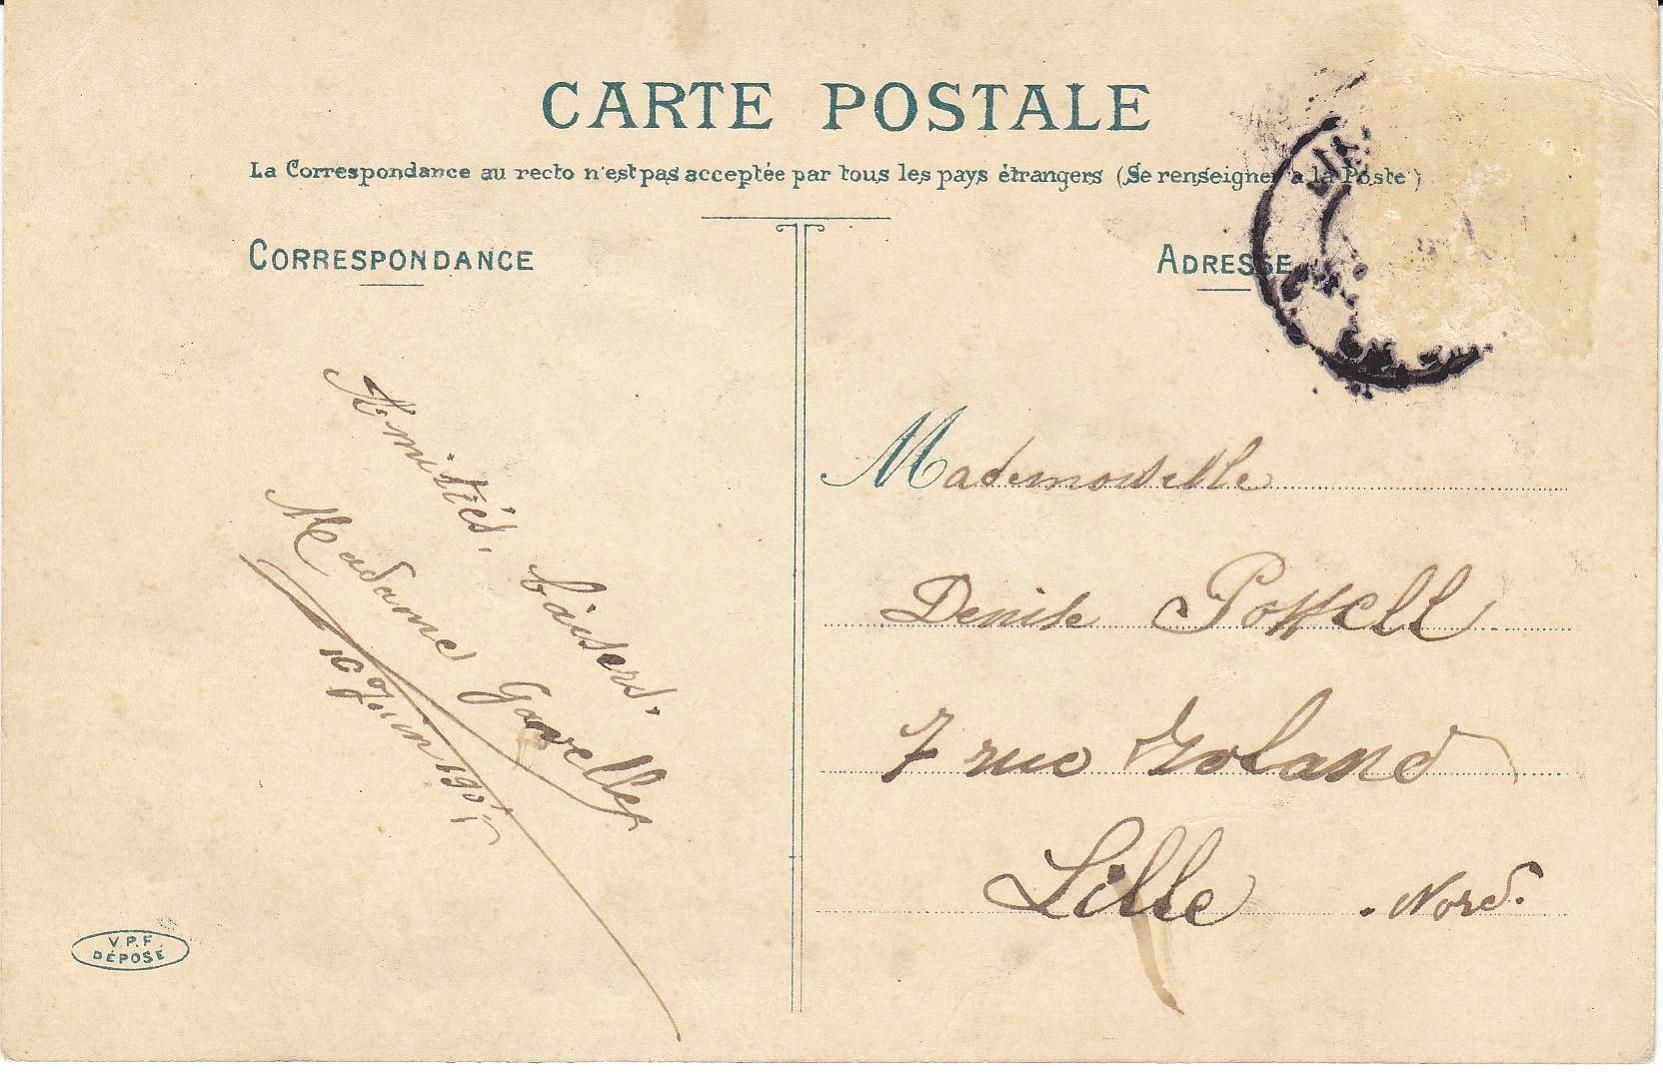 CARTE POSTALE
La Correspondance au recto n'est pas acceptée par tous les pays étrangers (Se renseigner a la Poste)
CORRESPONDANCE
Amitiés, baisers.
Madame Gavelle
16 Juin 1905
V.P.F.
DÉPOSÉ
ADRESSE
Mademoiselle
Denise
7 rue Roland
Lille . Nord.